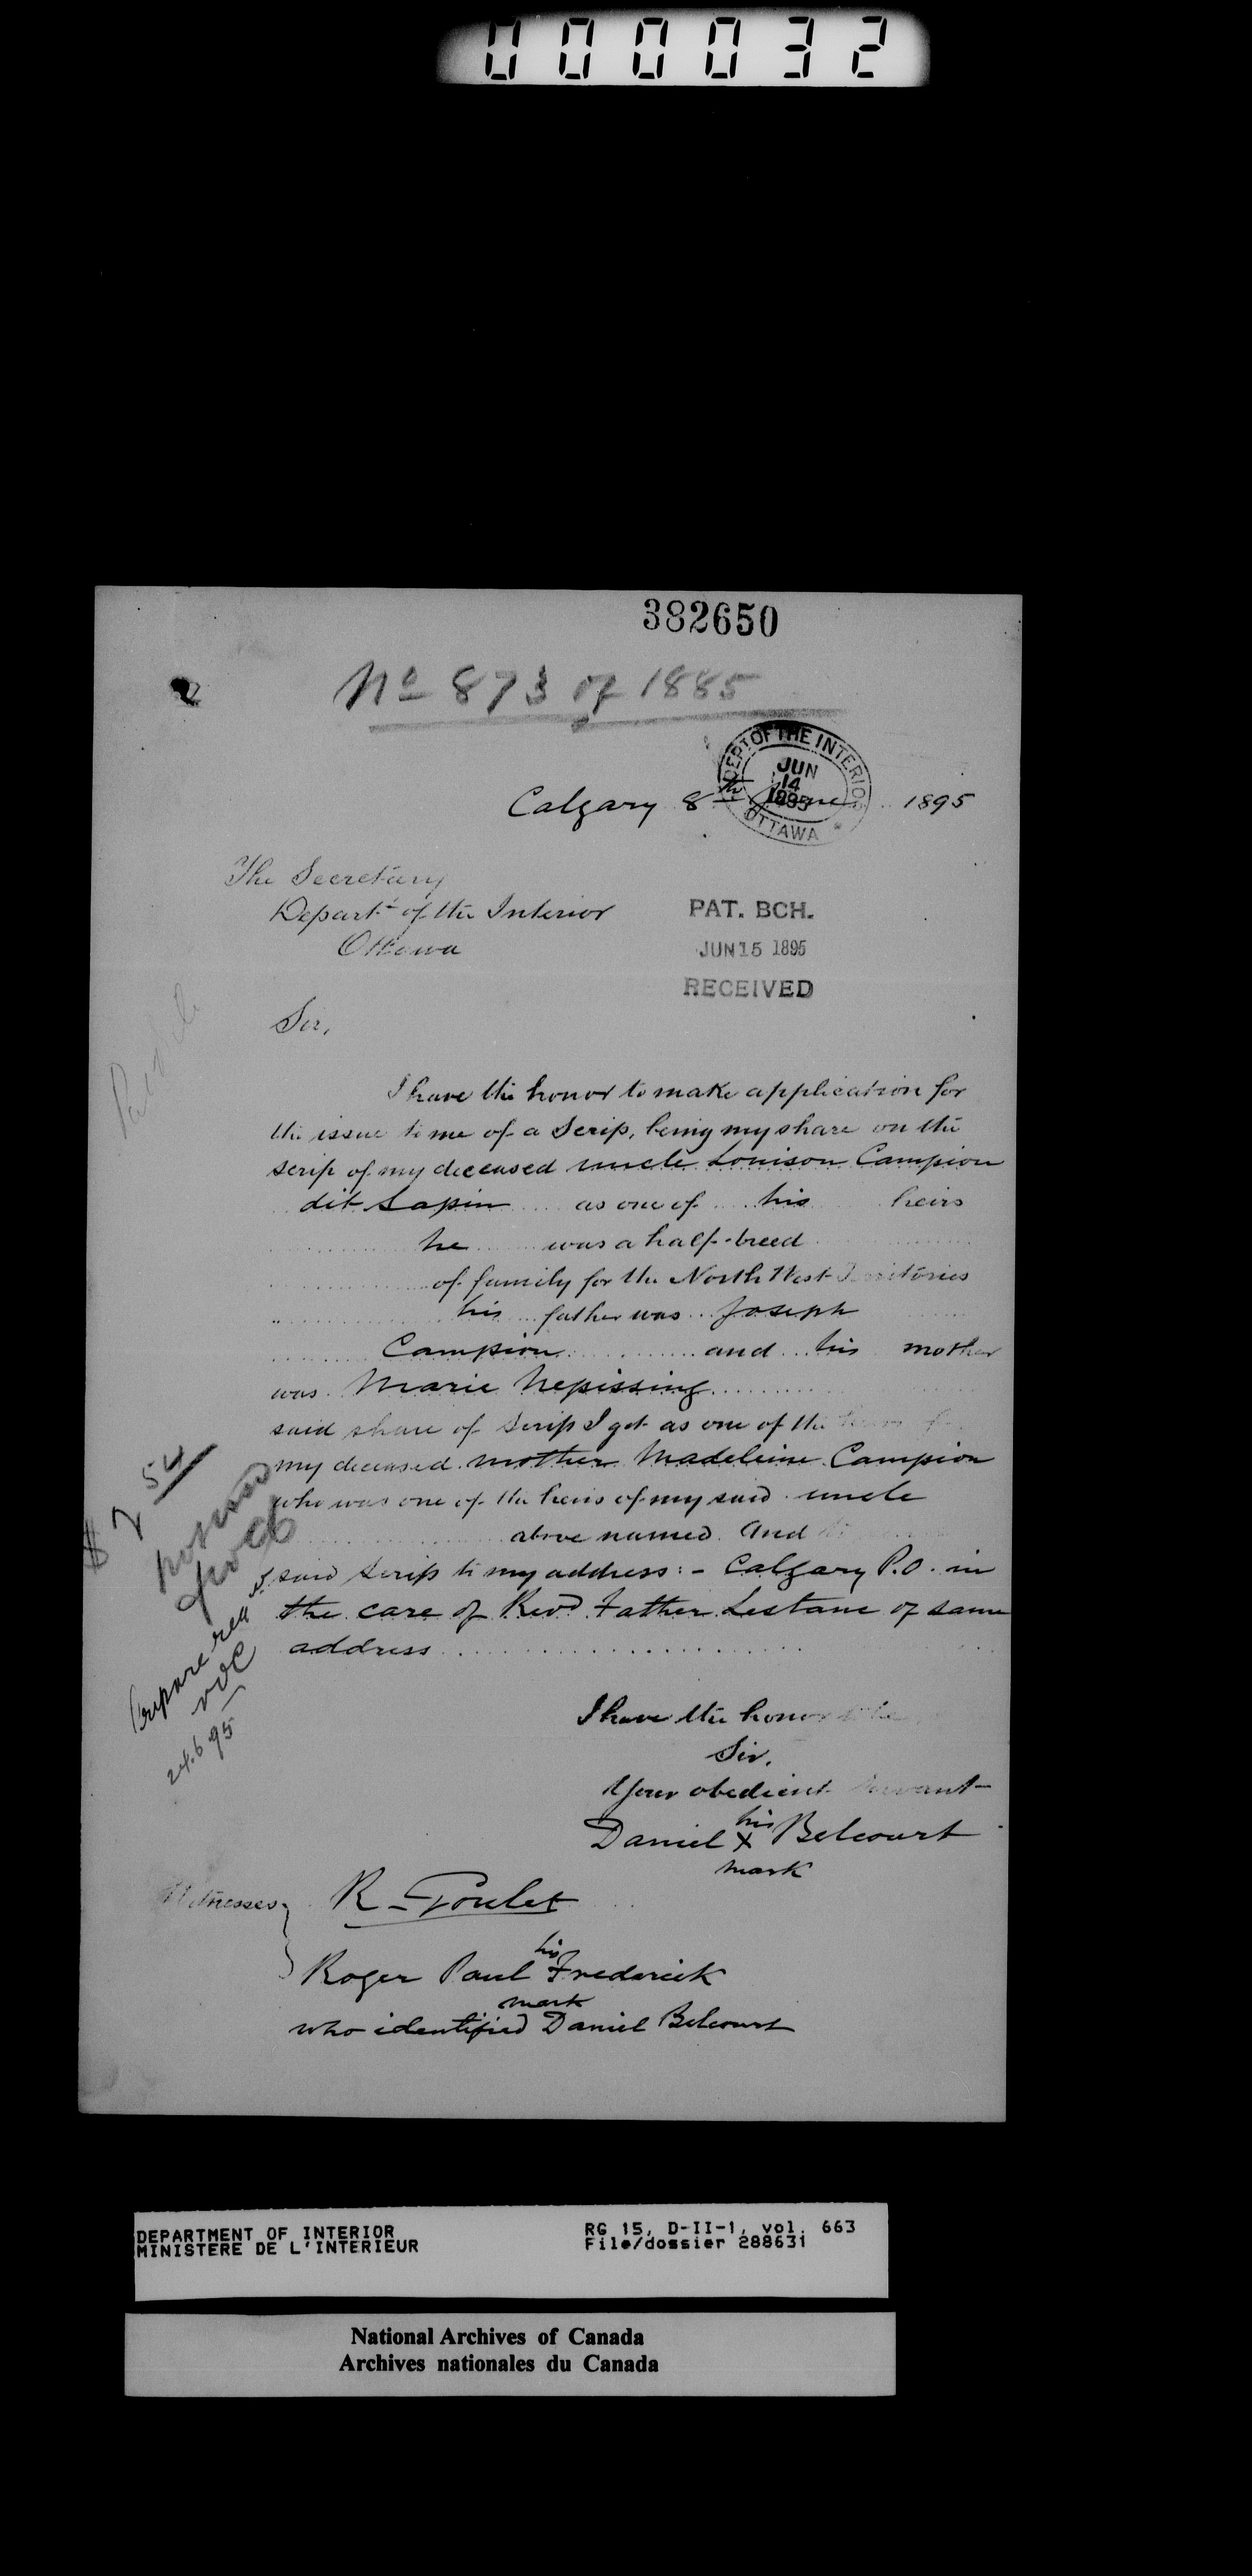 000032
382650
No 873 of 1885
DEPT OF THE INTERIOR
JUN
14
1895
OTTAWA
Calgary 8th June 1895
The Secretary
Depart-t of the Interior
Ottawa
PAT. BCH.
JUN 15 1895
RECEIVED
Sir,
I have the honor to make application for
the issue to me of a Scrip, being my share on the
scrip of my deceased uncle Louison Campion
dit Lapin as one of his heirs
he was a half-breed
of family for the North West Territories
his father was Joseph
Campion and his mother
was Marie Nepissing
said share of Scrip I get as one of the heirs
my deceased mother Madeleine Campion
who was one of the heirs of my said uncle
above named. And
said scrip to my address: - Calgary P.O. in
the care of Revd Father Lestanc of same
address
$ 7 54
Prepare
24.6.95
I have the honor to be
Sir,
Your obedient servant
Daniel his X mark Belcourt
Witnesses
R. Goulet
Roger Paul his mark Frederick
who identified Daniel Belcourt
DEPARTMENT OF INTERIOR
MINISTERE DE L'INTERIEUR
RG 15, D-II-1, vol. 663
File/dossier 288631
National Archives of Canada
Archives nationales du Canada